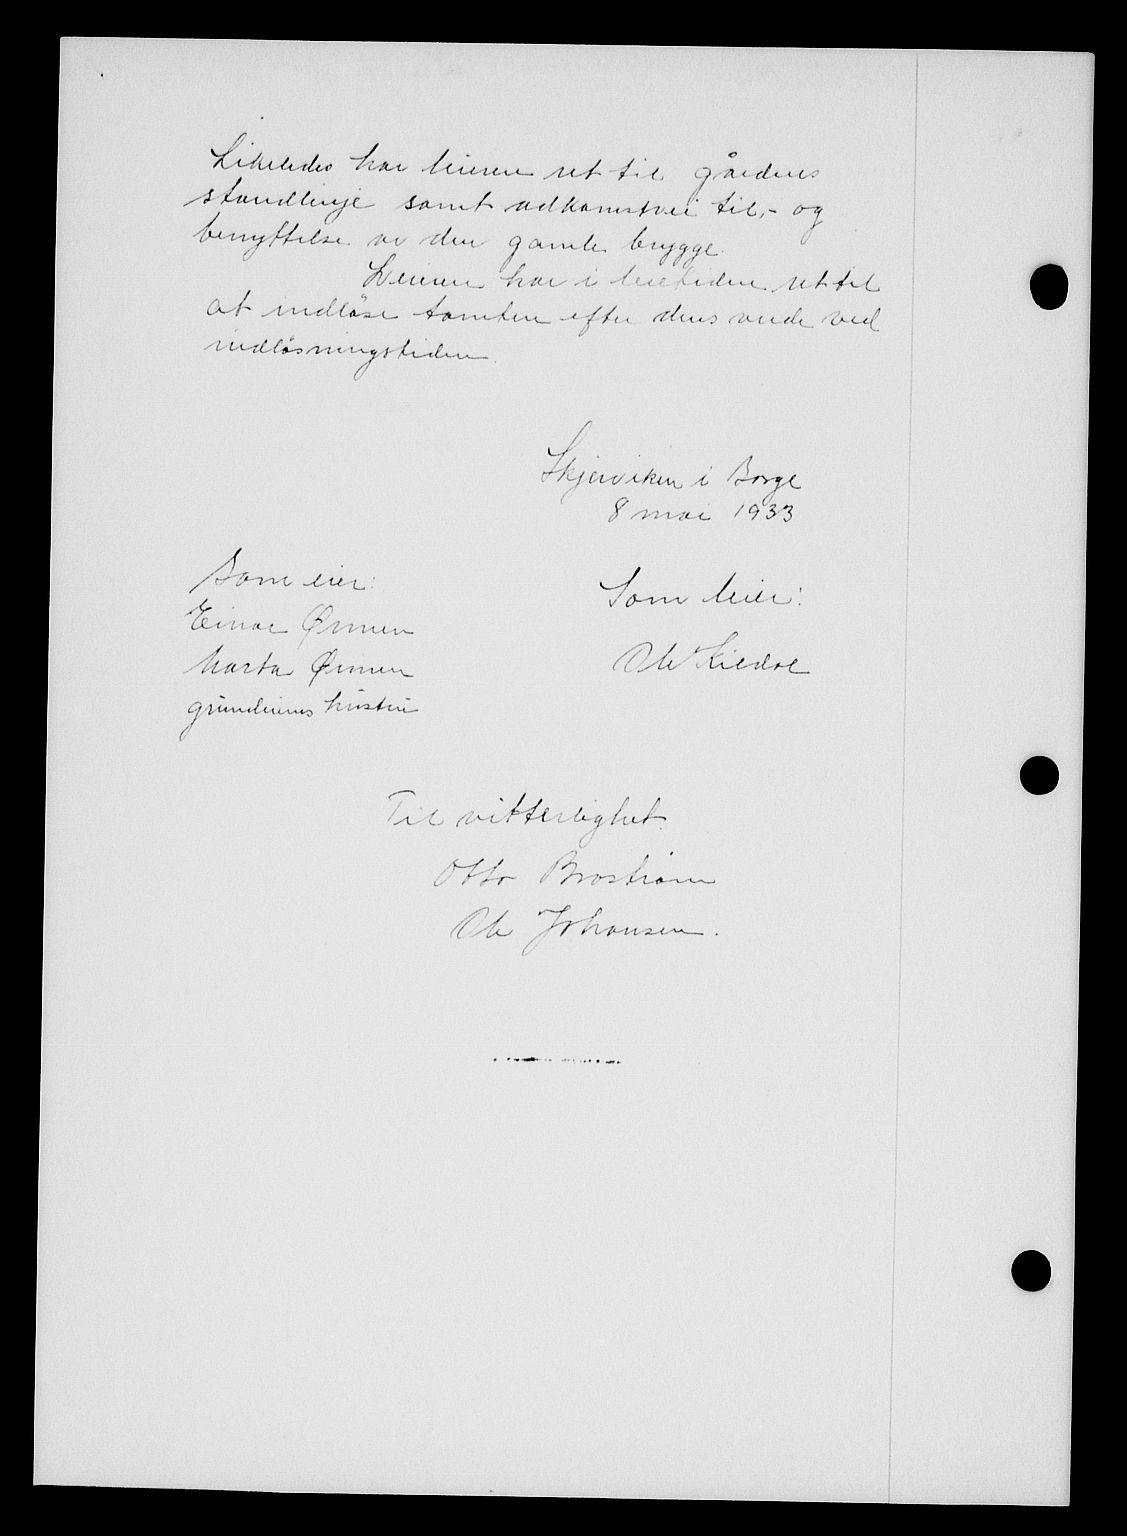 Likeledes har leieren ret til gårdens
standlinje samt adkomstvei til,- og
benyttelse av den gamle brygge.
Leieren har i leietiden ret til
at indløse tomten efter dens verdi ved
indløsningstiden.
Skjærviken i Borge
8 mai 1933
Som eier:
Einar Ørmen
Marta Ørmen
grundeierens hustru
Som leier:
Ole Kildal
Til vitterlighet.
Otto Brostrøm
Ole Johansen.